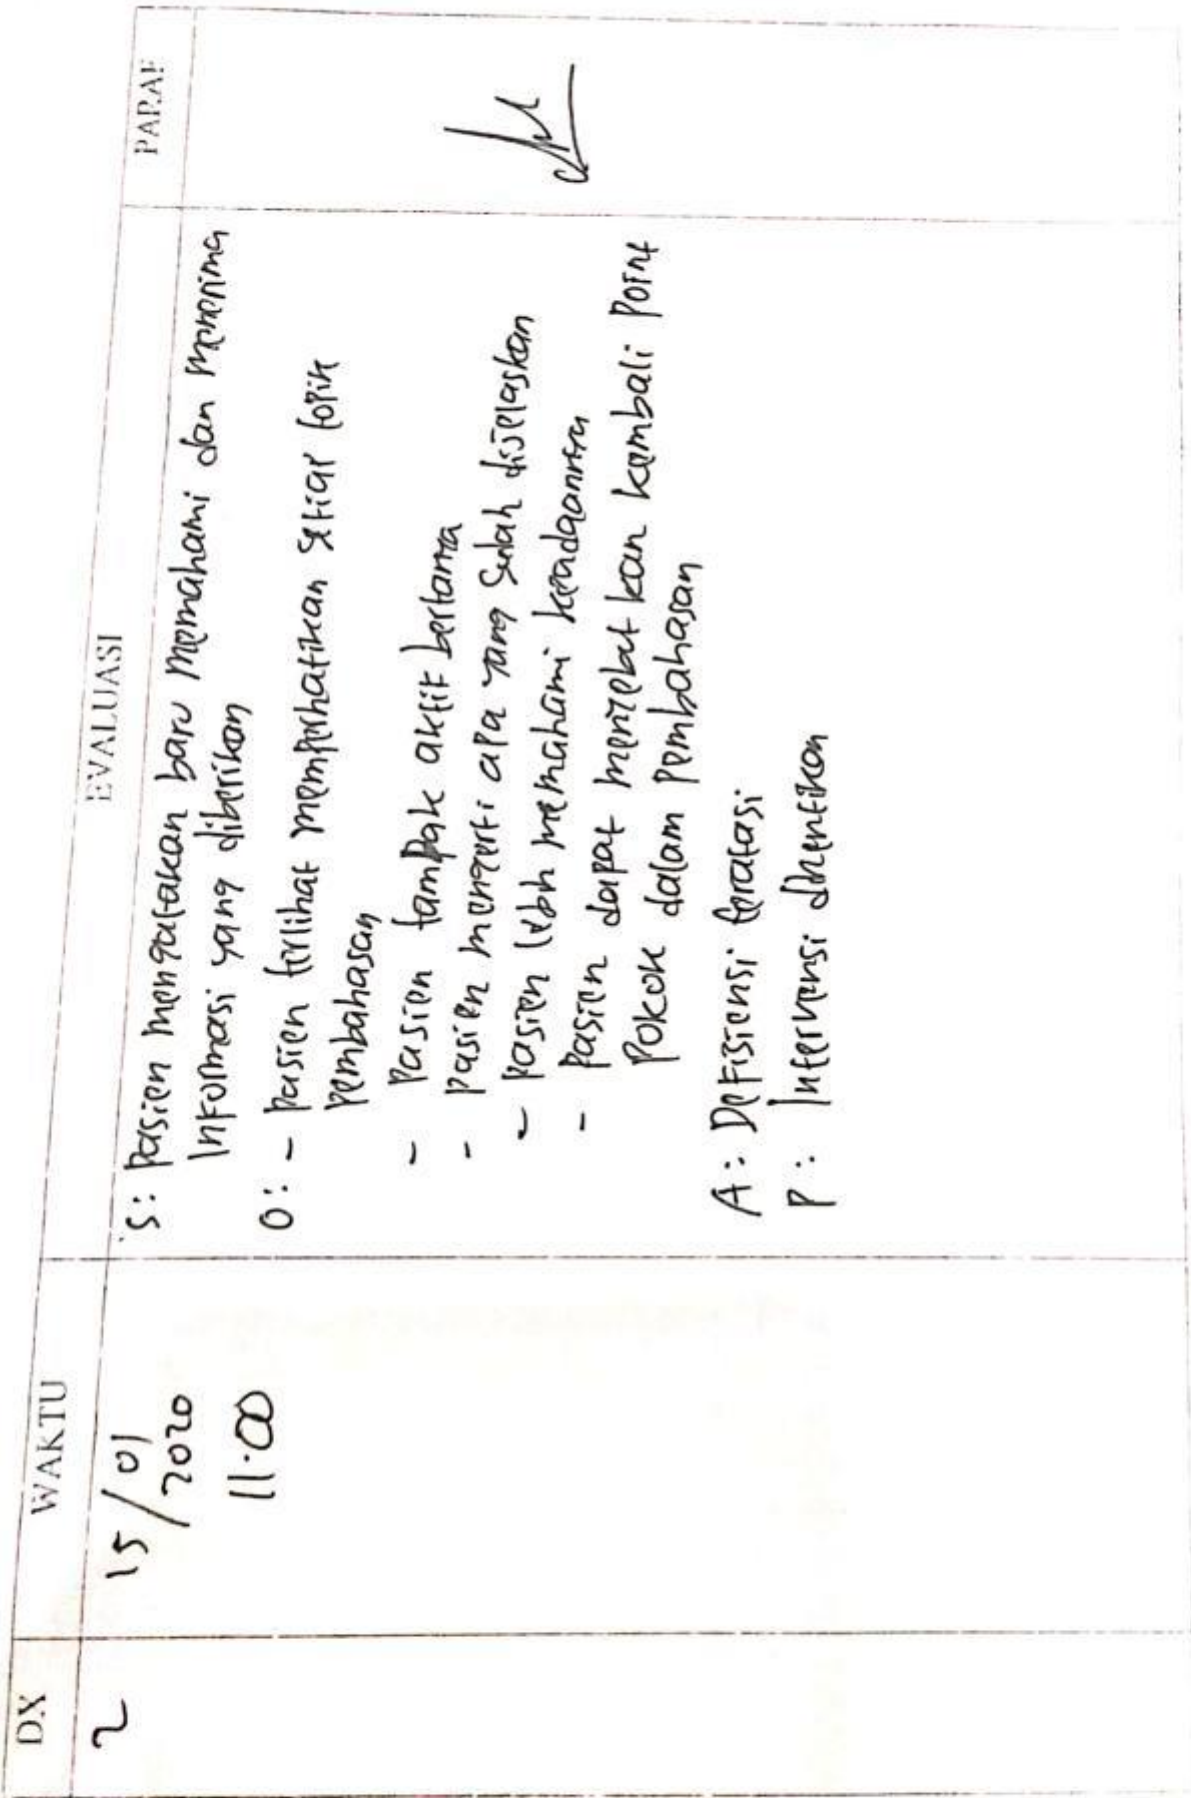 DX WAKTU EVALUASI PARAF
2
15/01
/2020
11.00
S: Pasien mengatakan baru memahami dan menerima
Informasi yang diberikan
O: - pasien terlihat memperhatikan setiap topik
pembahasan
- Pasien tampak aktif bertanya
- pasien mengerti apa yang sudah dijelaskan
- pasien lebih memahami keadaannya
- Pasien dapat menyebut kan kembali Point
Pokok dalam pembahasan
A: Defisiensi teratasi
P: Intervensi dihentikan